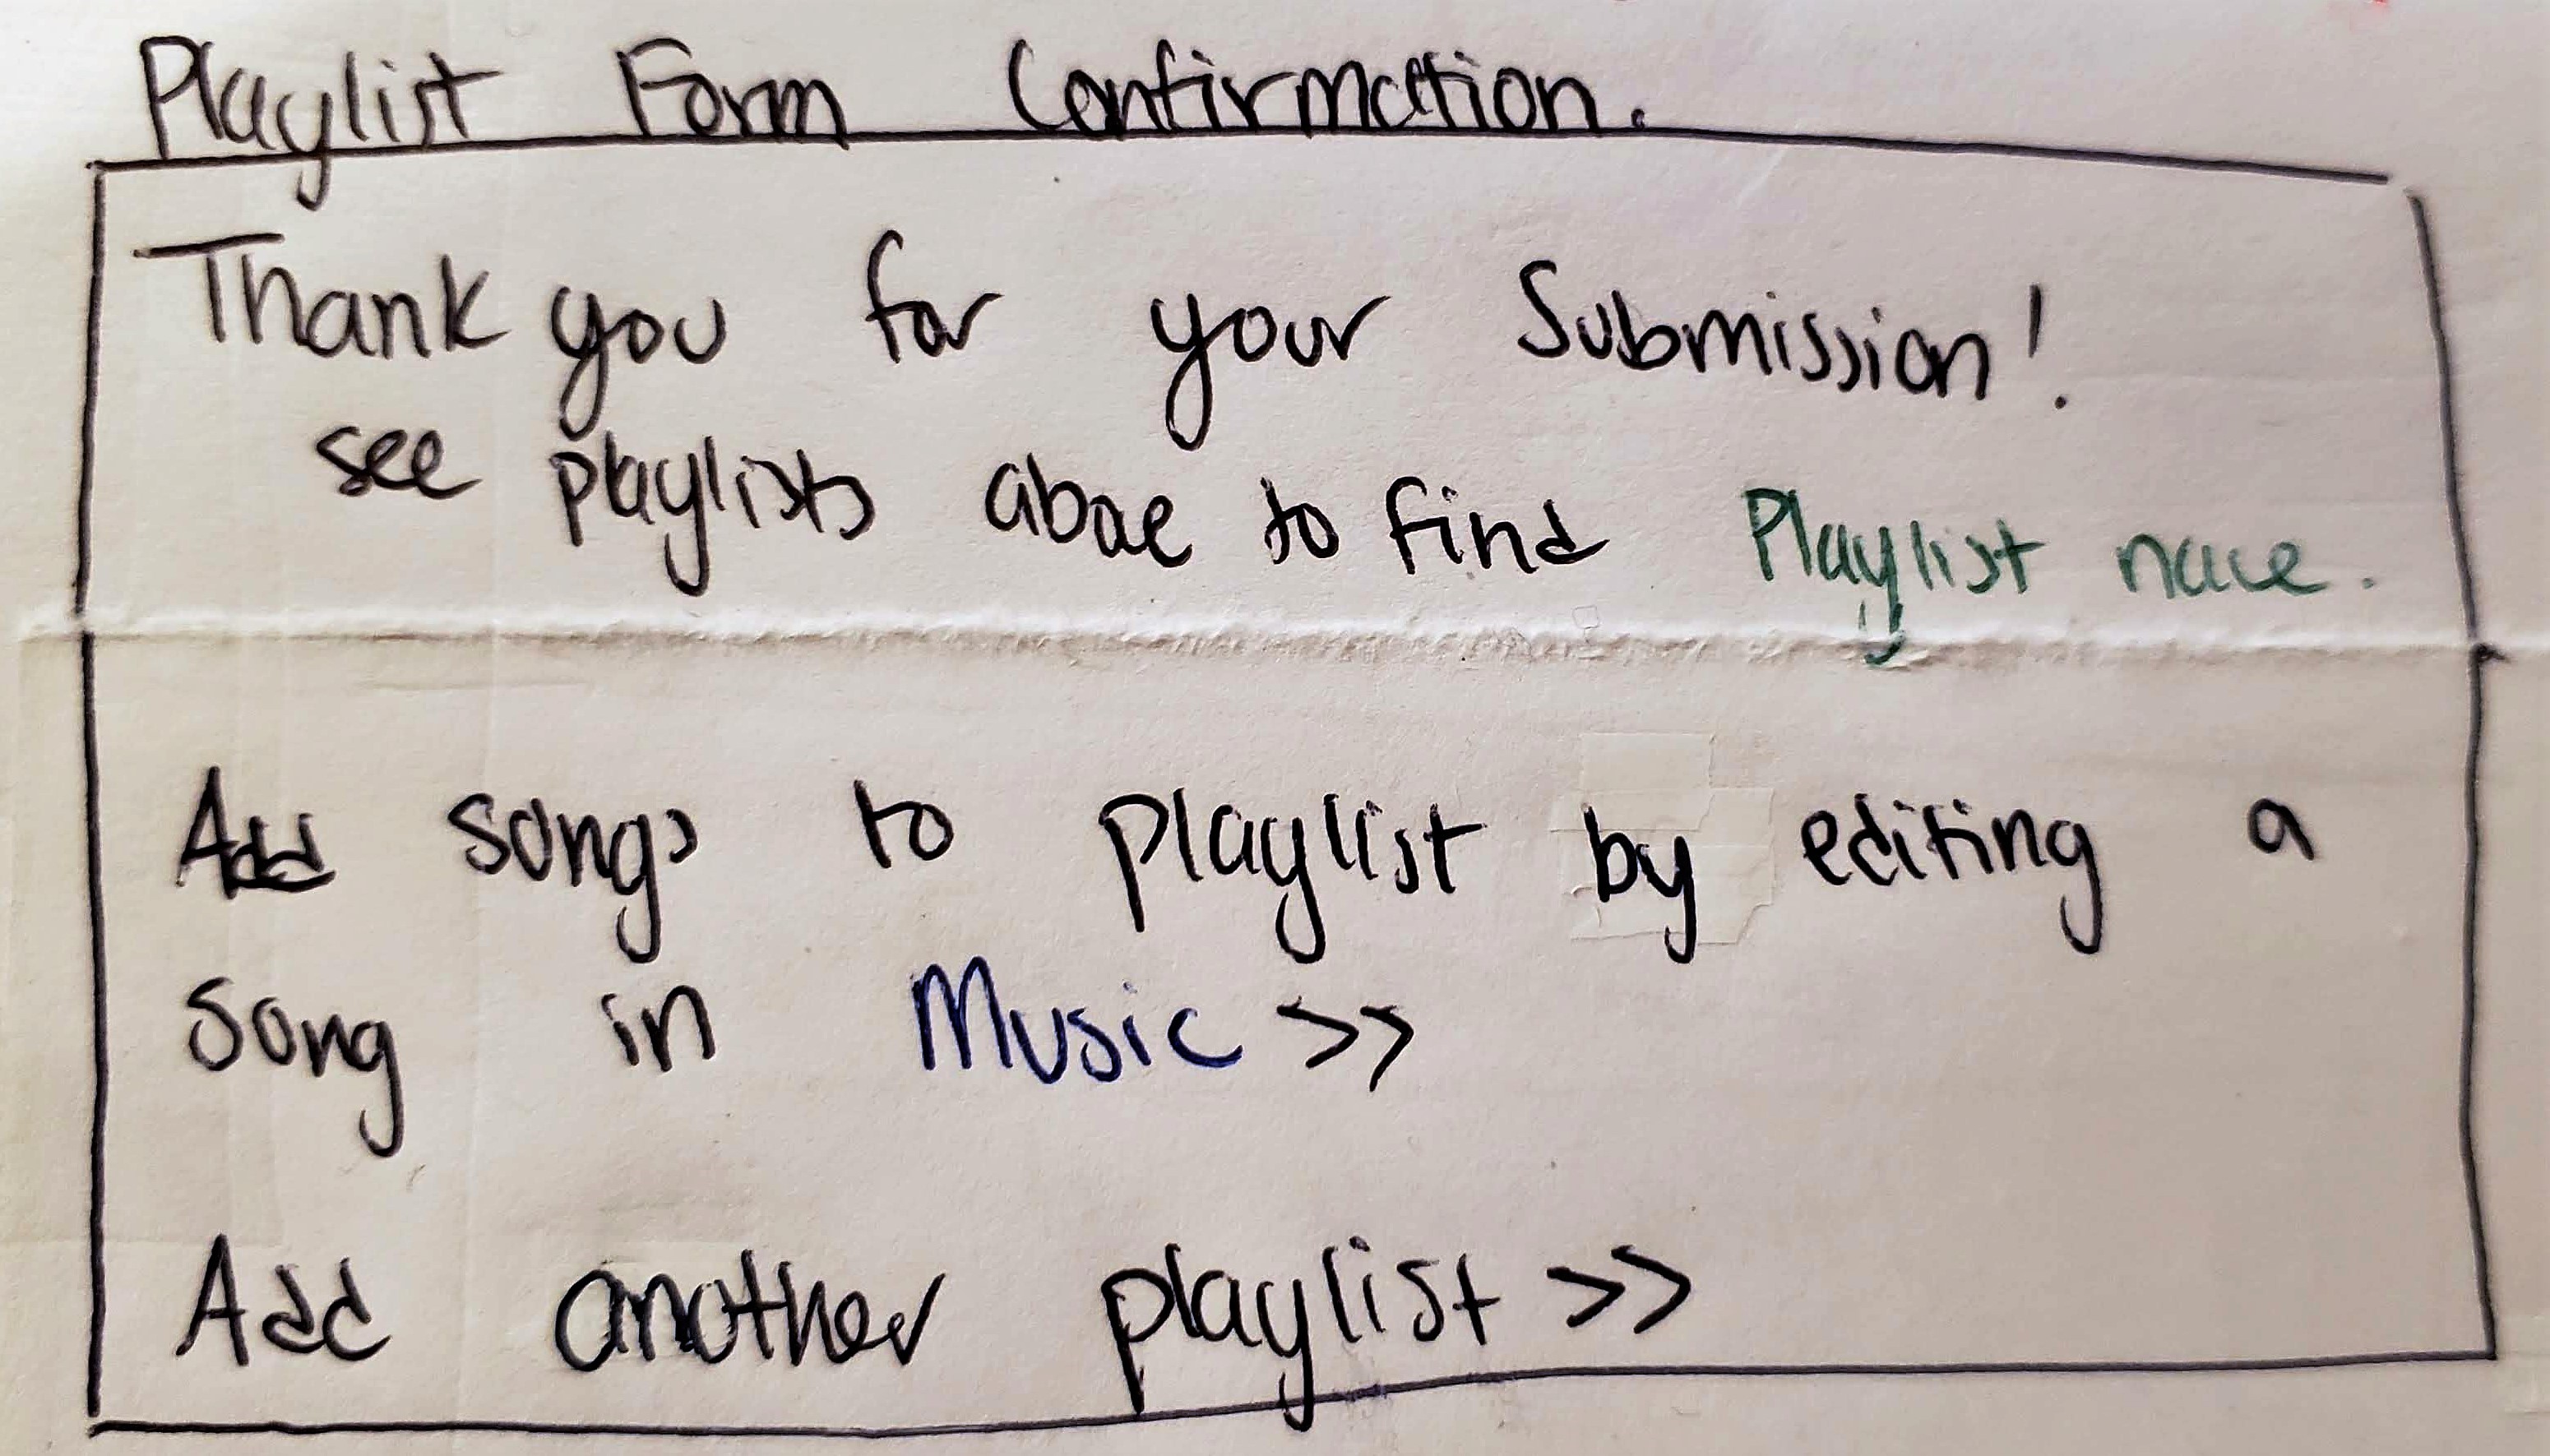 Playlist Form Confirmation.
Thank you for your Submission!
see playlists above to find Playlist name.
Add songs to playlist by editing a
song in Music >>
Add another playlist >>